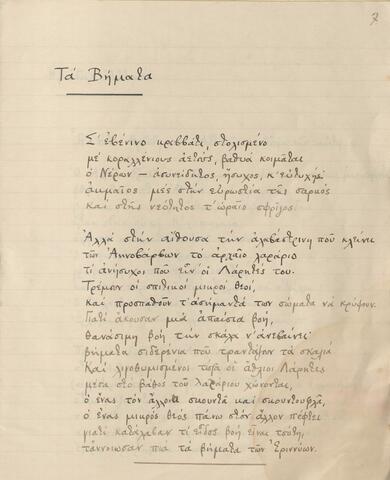 7
Τά Βήματα
Σ' ἐβένινο κρεββάτι, στολισμένο
μέ κοραλλένιους ἀετούς, βαθυά κοιμᾶται
ὁ Νέρων — ἀσυνείδητος, ἥσυχος, κ' εὐτυχής·
ἀκμαῖος μές στήν εὐρωστία τῆς σαρκός
καί στῆς νεότητος τ' ὡραῖο σφρῖγος.
Ἀλλά στήν αἴθουσα τήν ἀλαβάστρινη πού κλείνει
τῶν Ἀηνοβάρβων τό ἀρχαῖο λαράριο
τί ἀνήσυχοι πού εἶν' οἱ Λάρητές του.
Τρέμουν οἱ σπιτικοί μικροί θεοί,
καί προσπαθοῦν τ' ἀσήμαντά των σώματα νά κρύψουν.
Γιατί ἄκουσαν μιά ἀπαίσια βοή,
θανάσιμη βοή τήν σκάλα ν' ἀνεβαίνει·
βήματα σιδερένια πού τραντάζουν τά σκαλιά.
Καί λιγοθυμισμένοι τώρα οἱ ἄθλιοι Λάρητες
μέσα στό βάθος τοῦ λαράριου χώνονται,
ὁ ἕνας τόν ἄλλονα σκουντᾶ καί σκουντουφλᾶ,
ὁ ἕνας μικρός θεός πάνω στόν ἄλλον πέφτει
γιατί κατάλαβαν τί εἶδος βοή εἶναι τούτη,
τἄννοιωσαν πιά τά βήματα τῶν Ἐριννύων.